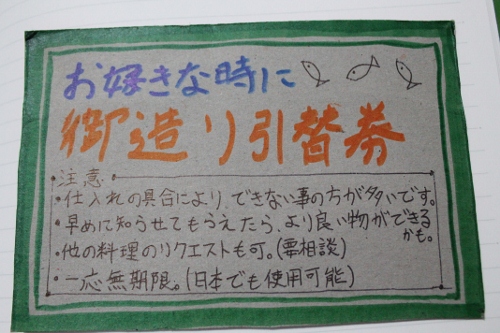 お好きな時に
御造り引替券
注意
・仕入れの具合により、できない事の方が多いです。
・早めに知らせてもらえたら、より良い物ができる
かも。
・他の料理のリクエストも可。(要相談)
・一応無期限。(日本でも使用可能)